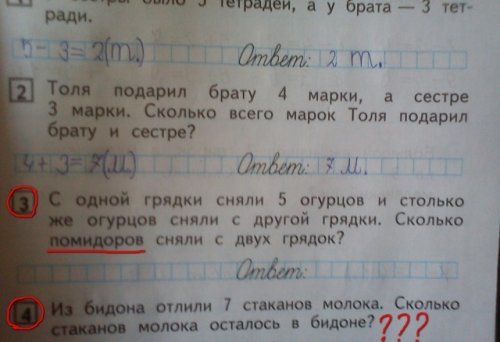 сестры было 5 тетрадей, а у брата — 3 тет-
ради.
5 − 3 = 2 (т.) Ответ: 2 т.
2 Толя подарил брату 4 марки, а сестре
3 марки. Сколько всего марок Толя подарил
брату и сестре?
4 + 3 = 7 (м.) Ответ: 7 м.
3 С одной грядки сняли 5 огурцов и столько
же огурцов сняли с другой грядки. Сколько
помидоров сняли с двух грядок?
Ответ:
4 Из бидона отлили 7 стаканов молока. Сколько
стаканов молока осталось в бидоне? ???